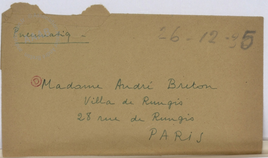 Pneumatiq
26-12-35
Madame André Breton
Villa de Rungis
28 rue de Rungis
PARIS